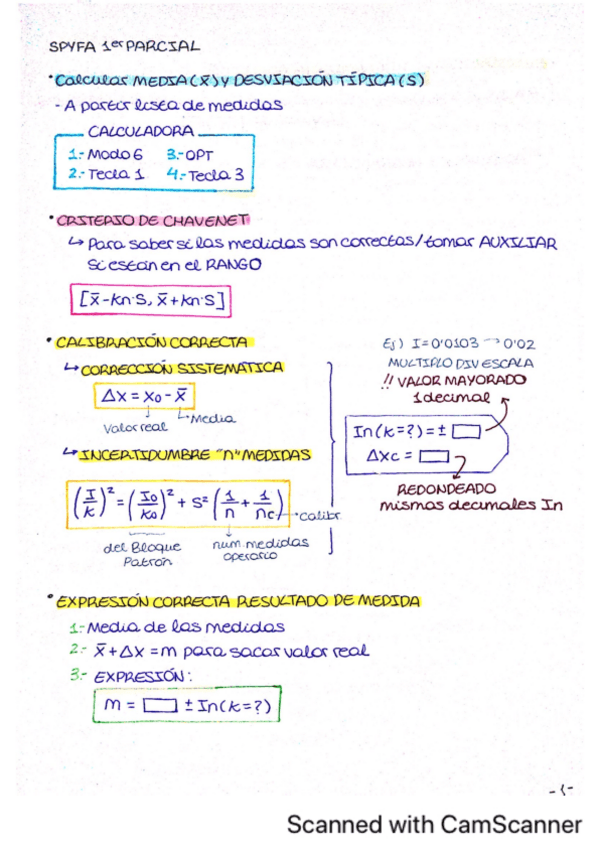 SPYFA 1er PARCIAL
· Calcular MEDIA (x̄) y DESVIACIÓN TÍPICA (S)
- A partir lista de medidas
CALCULADORA
1.- Modo 6 3.- OPT
2.- Tecla 1 4.- Tecla 3
· CRITERIO DE CHAVENET
↳ Para saber si las medidas son correctas/tomar AUXILIAR
Si están en el RANGO
[x̄-kn·S, x̄+kn·S]
· CALIBRACIÓN CORRECTA
↳ CORRECCIÓN SISTEMÁTICA
Δx = x₀ - x̄
Valor real
Media
↳ INCERTIDUMBRE "n" MEDIDAS
(I/k)² = (I₀/k₀)² + S² (1/n + 1/nc) → calibr
del Bloque Patrón
num. medidas operario
Ej) I=0'0103 → 0'02
MULTIPLO DIV ESCALA
!! VALOR MAYORADO
1 decimal
In(k=?) = ± □
Δxc = □
REDONDEADO
mismos decimales In
· EXPRESIÓN CORRECTA RESULTADO DE MEDIDA
1.- Media de las medidas
2.- x̄ + Δx = m para sacar valor real
3.- EXPRESIÓN:
m = □ ± In(k=?)
-1-
Scanned with CamScanner